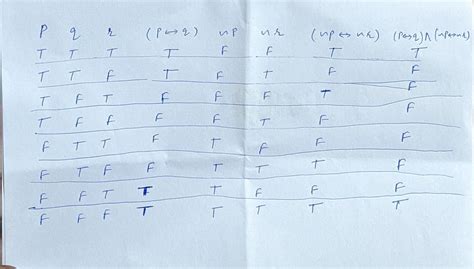 p q r (p↔q) ~p ~r (~p↔~r) (p↔q)∧(~p↔~r)
T T T T F F T T
T T F T F T F F
T F T F F F T F
T F F F F T F F
F T T F T F F F
F T F F T T T F
F F T T T F F F
F F F T T T T T